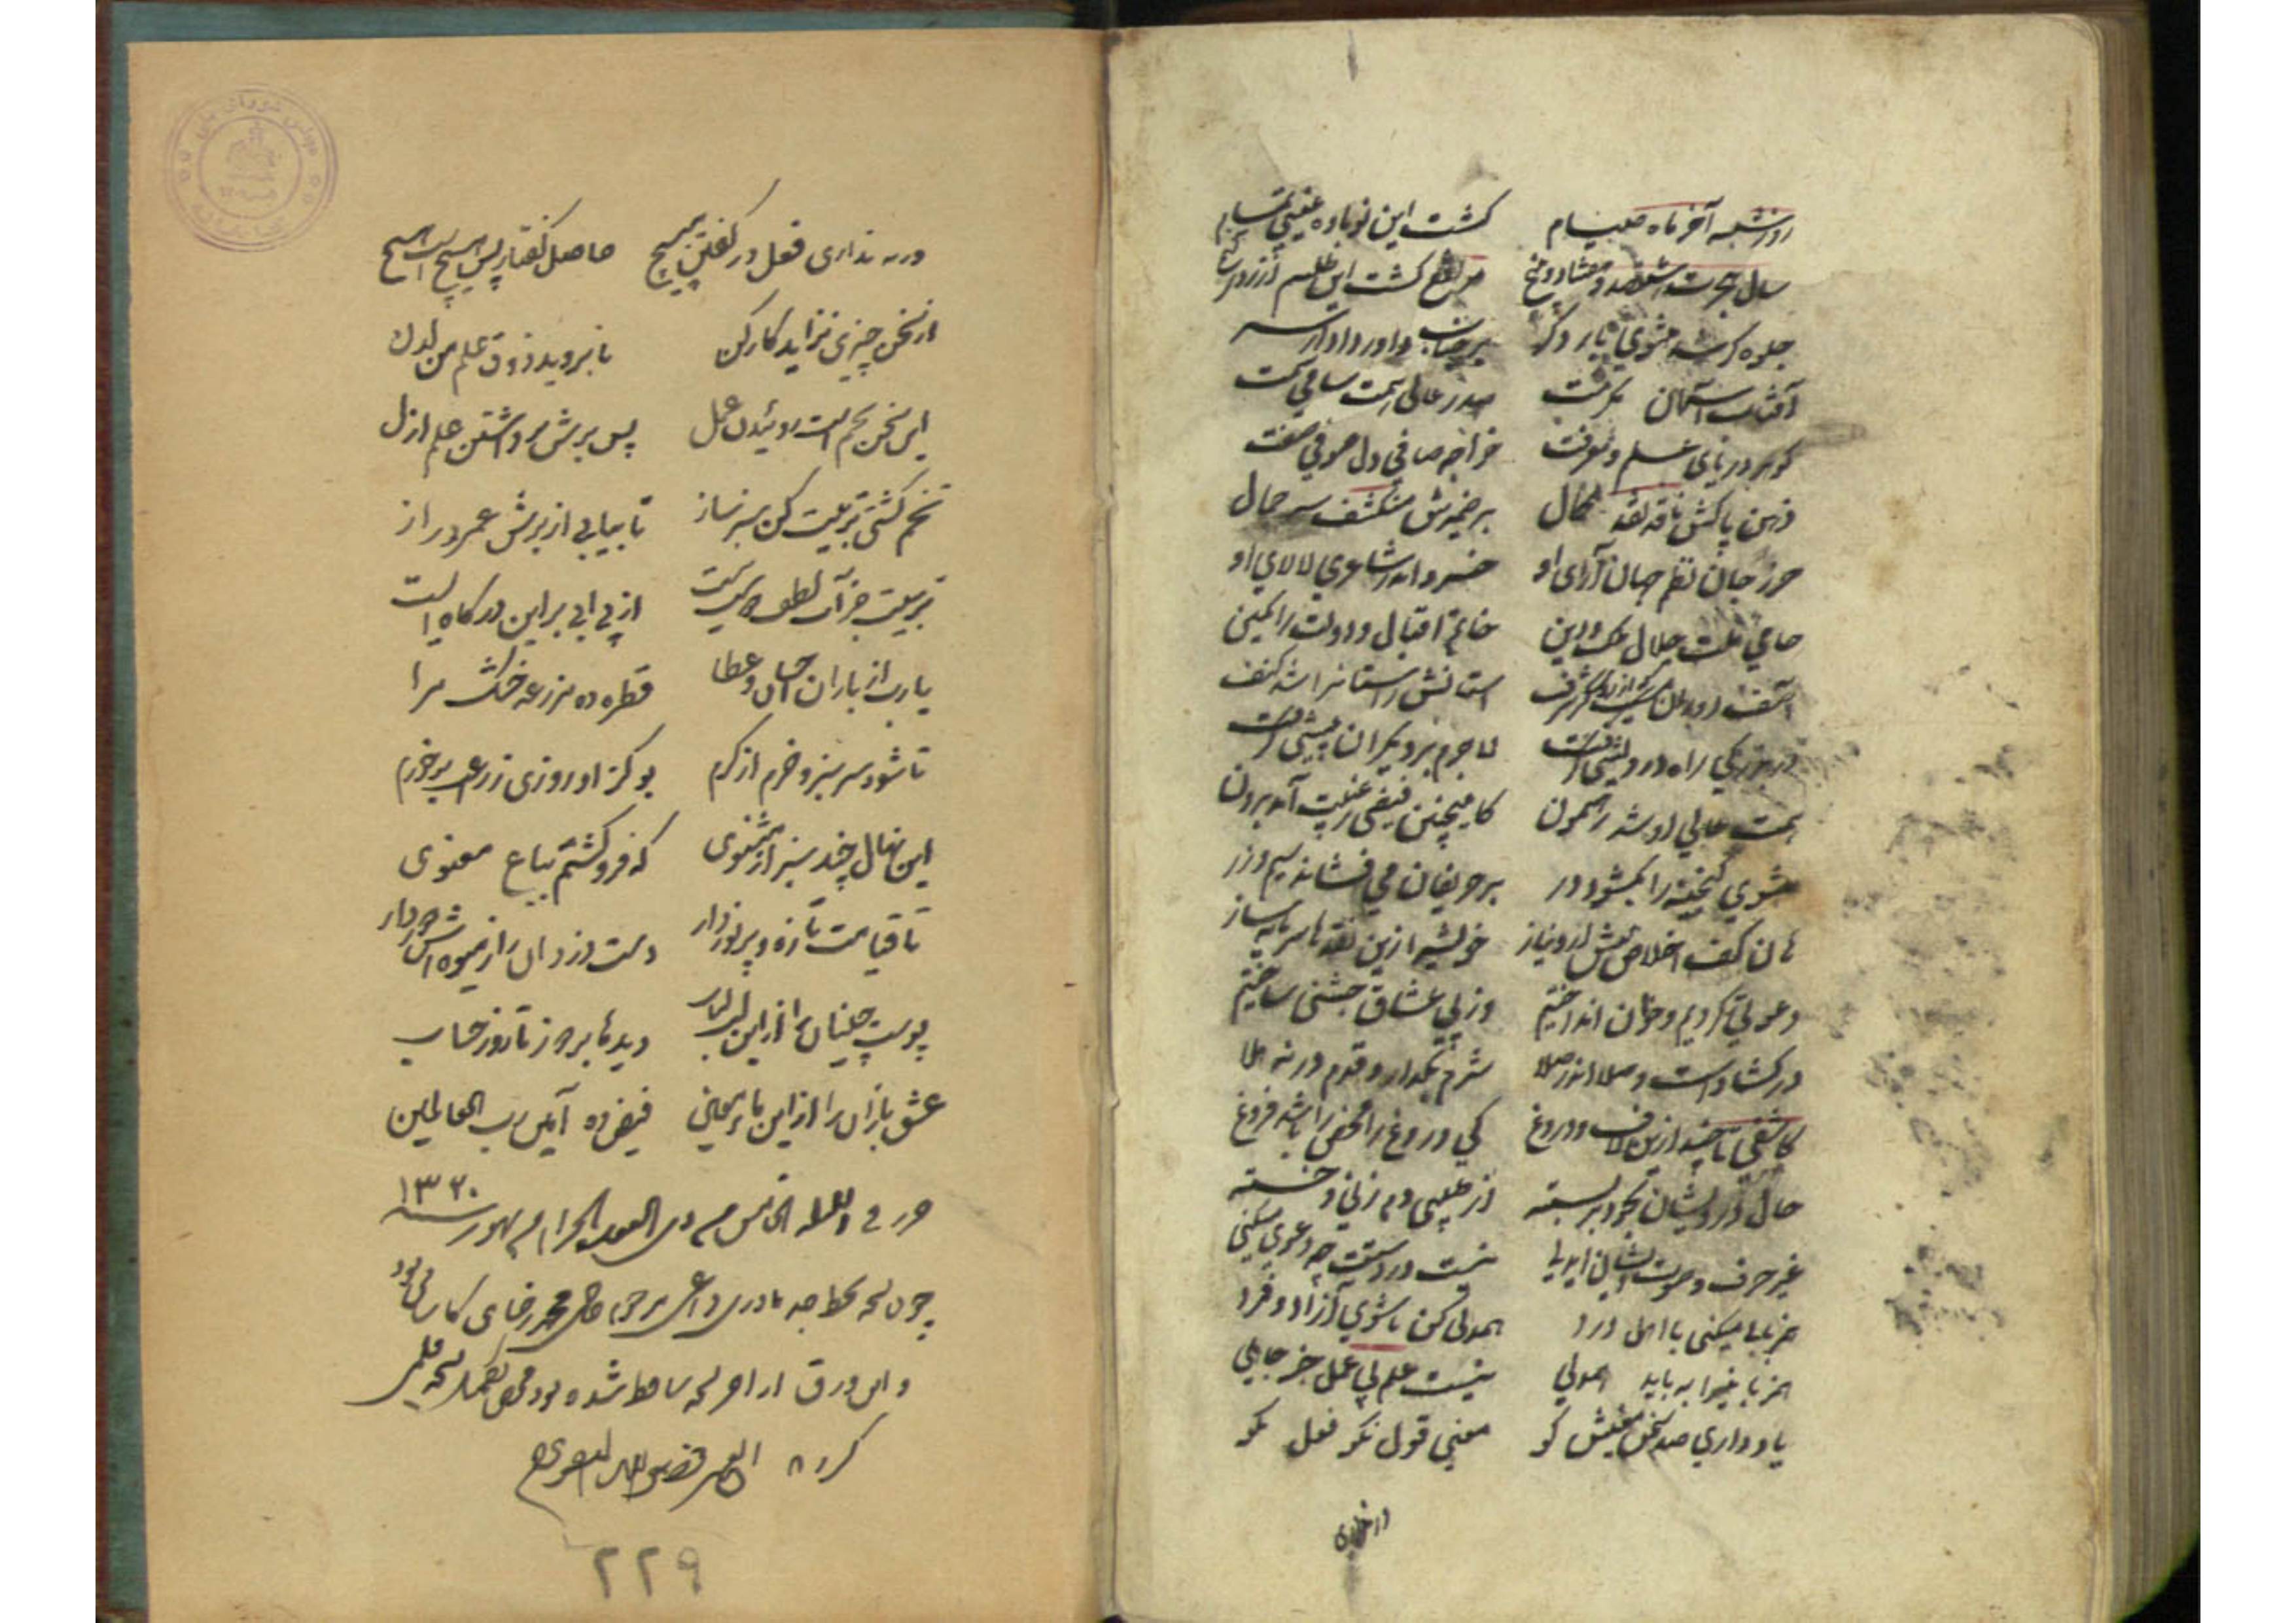 روز شنبه آخر ماه صیام گشت این نوباوه غیبی تمام
سال هجرت هشتصد و هفتاد و پنج گشت این طلسم از زر
جلوه کرد مثنوی بار دگر بر جناب داور
آفتاب آسمان مکرمت صدر عالی همت سامی سمت
گوهر دریای علم و معرفت خواجه صافی دل صوفی صفت
ذهن پاکش ناقد نقد کمال بر ضمیرش منکشف سر جمال
حرز جان نظم جهان آرای او خسرو اندر شاعری لالای او
حامی ملت جلال ملک و دین خاتم اقبال و دولت را نگین
آصف دوران شرف استانش راستانرا شد کنف
در بزرگی راه درویشی گرفت لاجرم بر دیگران پیشی گرفت
همت عالی او شد رهنمون کاینچنین فیضی ز غیب آمد برون
مثنوی گنجینه را بگشود در بر حریفان می فشاند سیم و زر
هان کف اخلاص پیش آر و نیاز خویش را زین نقد ها سرمایه ساز
دعوتی کردیم و خوان انداختیم وز پی عشاق جشنی ساختیم
در گشاد است و صلا اندر صلا شرم بگذار و قدم در نه هلا
کاشفی تا چند ازین لاف و دروغ کی دروغ محض را باشد فروغ
حال درویشان بخود بر بسته از عیسی دم زنی و خسته
غیر حرف و صوت ایشان ای دنی نیست در دستت چه دعوی میکنی
همزبانی میکنی با اهل درد همدلی کن تا شوی آزاد و فرد
همزبانی را به باید همدلی نیست علم بی عمل جز جاهلی
یاد داری صد سخن معنیش کو معنی قول نکو فعل نکو
ور نداری
ور نداری فعل در گفتن مپیچ حاصل گفتار پس هیچ است هیچ
از سخن چیزی نزاید کار کن تا بروید ذوق علم من لدن
این سخن تخم است روئیدن عمل پس برش برداشتن علم ازل
تخم کشتی تربیت کن بسر نساز تا بیابی از برش عمر دراز
تربیت جز آب لطف از پی آبی بر این درگاه ایست
یارب از باران احسان و عطا قطره ده مزرعه خشک مرا
تا شود سرسبز و خرم از کرم بو کز او روزی ز زرعت برخورم
این نهال چند سبز از مثنوی که فرو کشتم بباغ معنوی
تا قیامت تازه و پر نور دار دست دزدان را ز میوه اش دور دار
پوست چینان را از این دیده ها بردوز تا روز حساب
عشق بازان را از این ماء معین فیض ده آمین رب العالمین
حرر فی من ذی القعده الحرام ۱۳۲۰
چون نسخه بخط جد مادری مرحوم محمد رضای کاشانی بود
و این ورق از آخر نسخه ساقط شده بود تکمیل نسخه
کرد
۲۲۹